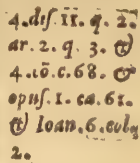 4.diſ.11.q.2.
ar.2.q.3.&
4.cō.c.68. &
opuſ.1.ca.61.
& Ioan.6.
2.